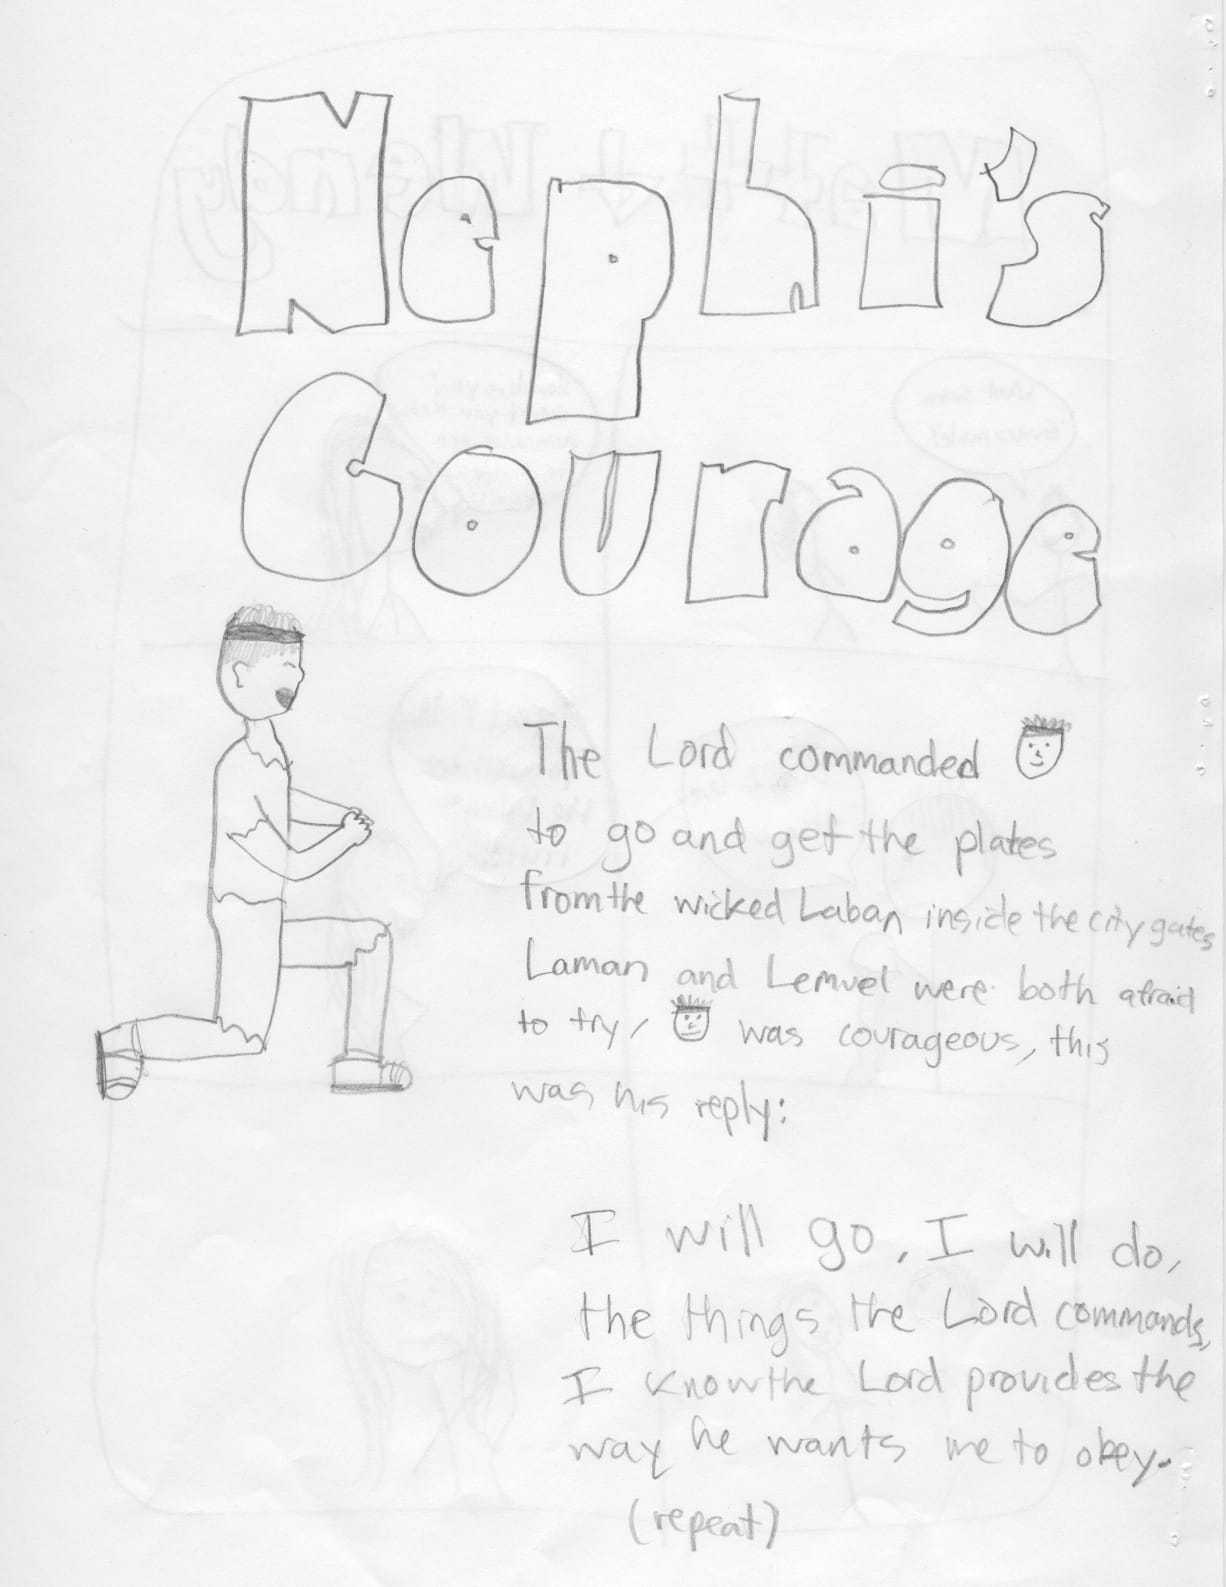 Nephi's
Courage
The Lord commanded
to go and get the plates
from the wicked Laban inside the city gates
Laman and Lemuel were both afraid
to try, was courageous, this
was his reply:
I will go, I will do,
the things the Lord commands,
I know the Lord provides the
way he wants me to obey.
(repeat)